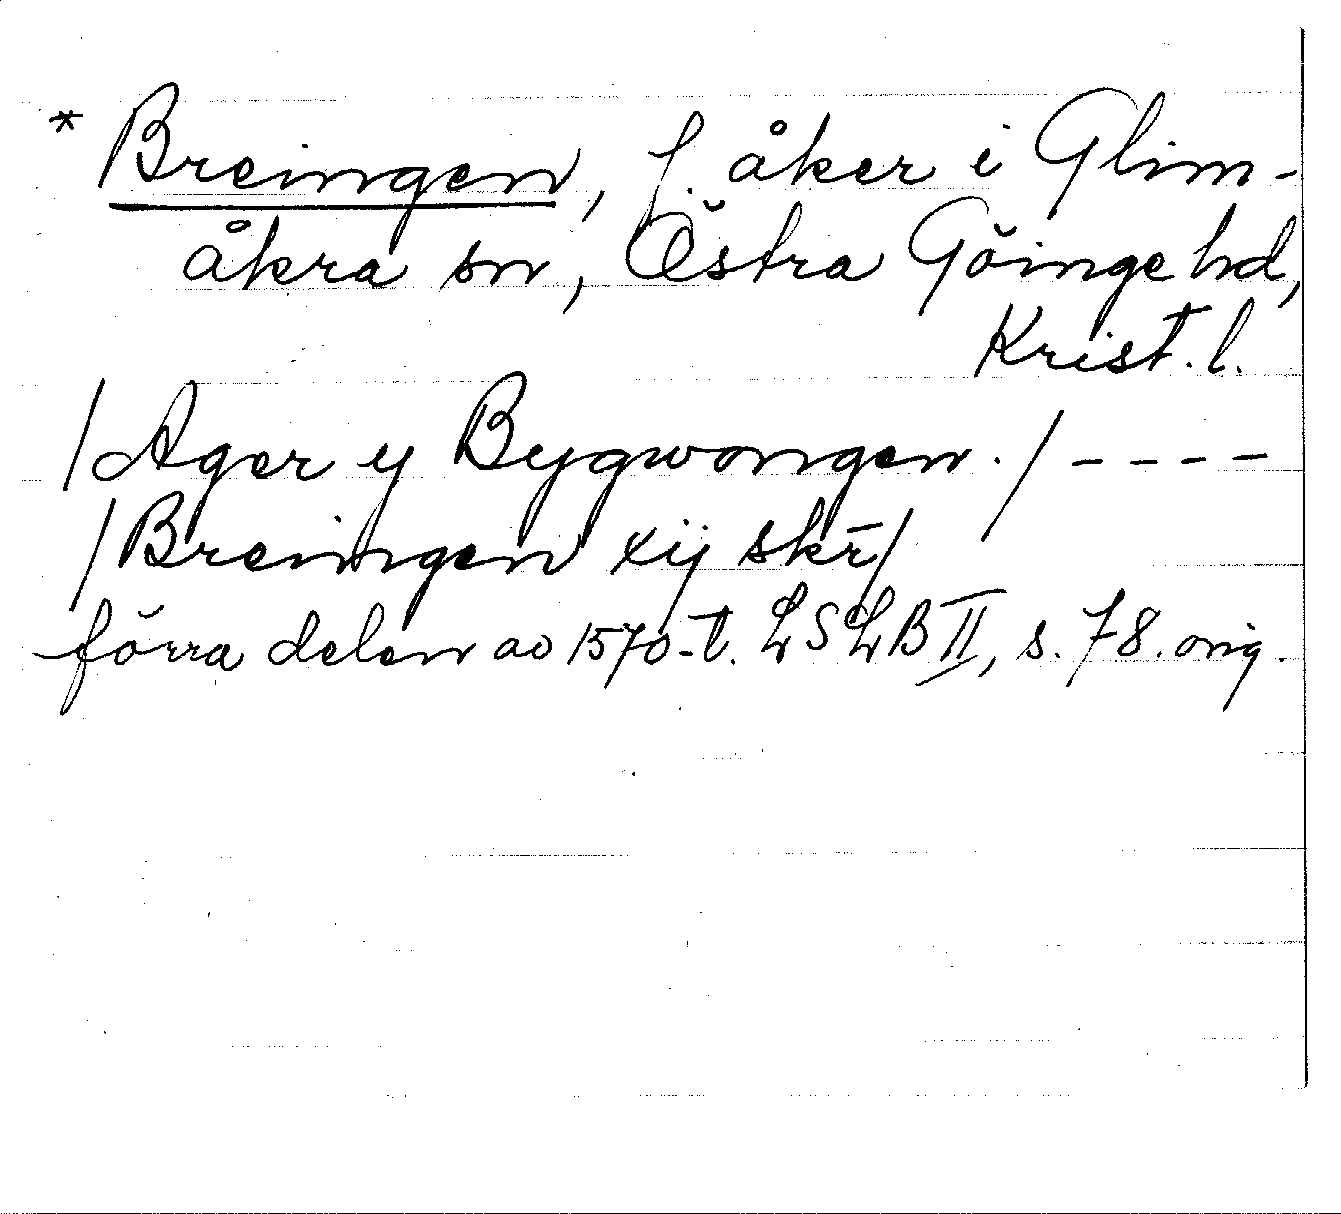 * Breingen, f. åker i Glim-
åkra sn, Östra Göinge hd,
Krist. l.
/Ager y Bygwongen./ - - - -
/Breingen xij skr̄/
förra delen av 1570-t. LSLB II, s. 78. orig.